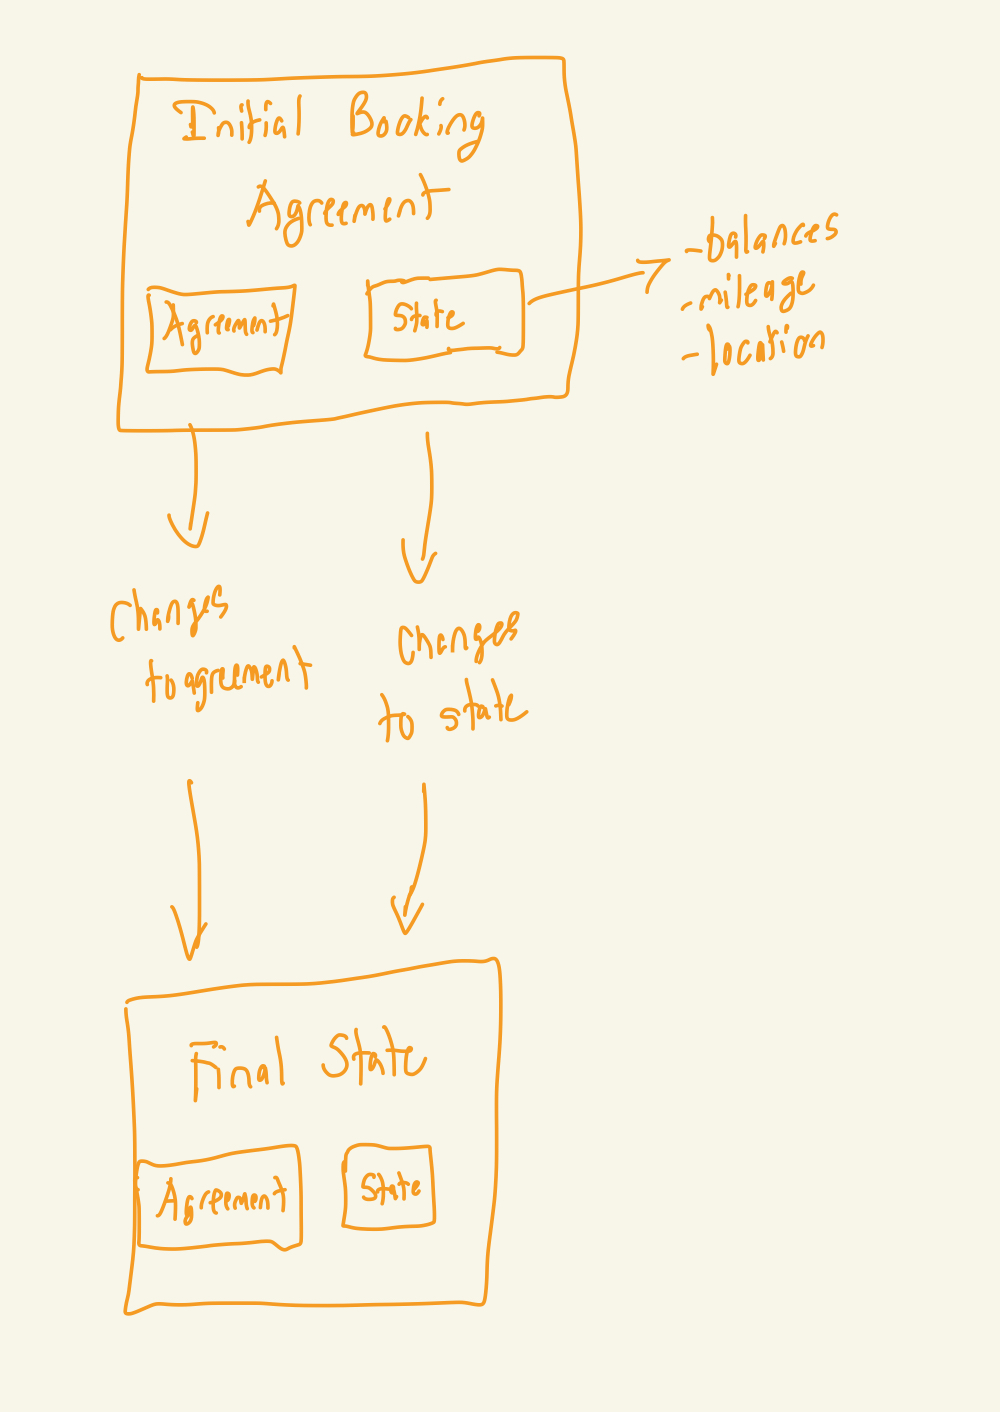 Initial Booking
Agreement
Agreement
State
-balances
-mileage
-location
Changes
to agreement
Changes
to state
Final State
Agreement
State